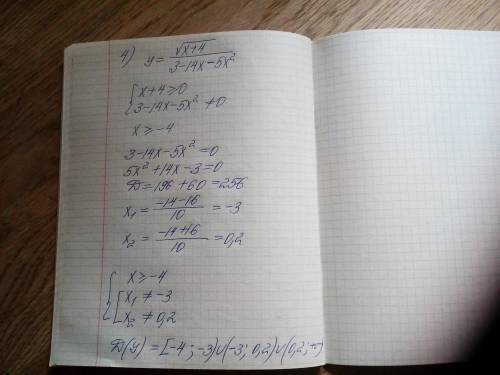 4) y = √(x+4) / (3-14x-5x²)
{ x+4 ≥ 0
3-14x-5x² ≠ 0
x ≥ -4
3-14x-5x² = 0
5x² + 14x - 3 = 0
D = 196 + 60 = 256
x₁ = (-14-16)/10 = -3
x₂ = (-14+16)/10 = 0,2
{ x ≥ -4
[ x₁ ≠ -3
x₂ ≠ 0,2
D(y) = [-4; -3) ∪ (-3; 0,2) ∪ (0,2; +∞)